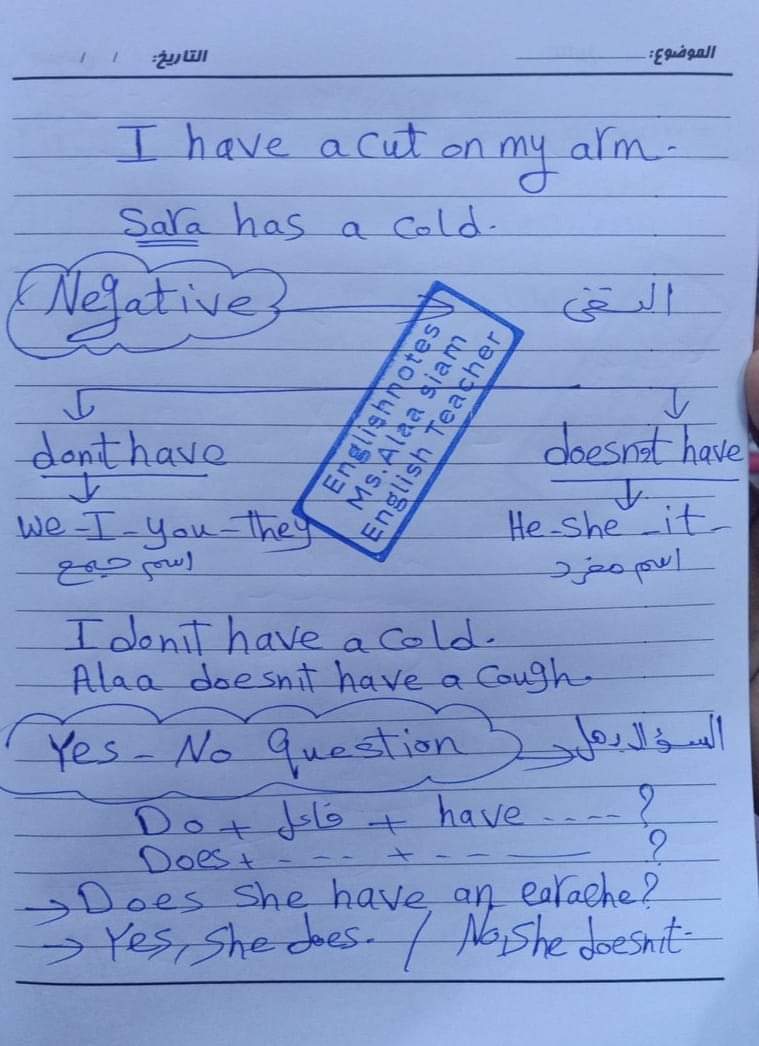 الموضوع: التاريخ: / /
I have a cut on my arm.
Sara has a cold.
Negative النفى
Englishnotes
Ms. Alaa siam
English Teacher
don't have doesn't have
we-I-you-they He-she-it-
اسم جمع اسم مفرد
I don't have a cold.
Alaa doesn't have a cough.
Yes-No Question السؤال بهل
Do + فاعل + have ----?
Does + --- + --- ?
→ Does she have an earache?
→ Yes, she does. / No, she doesn't.